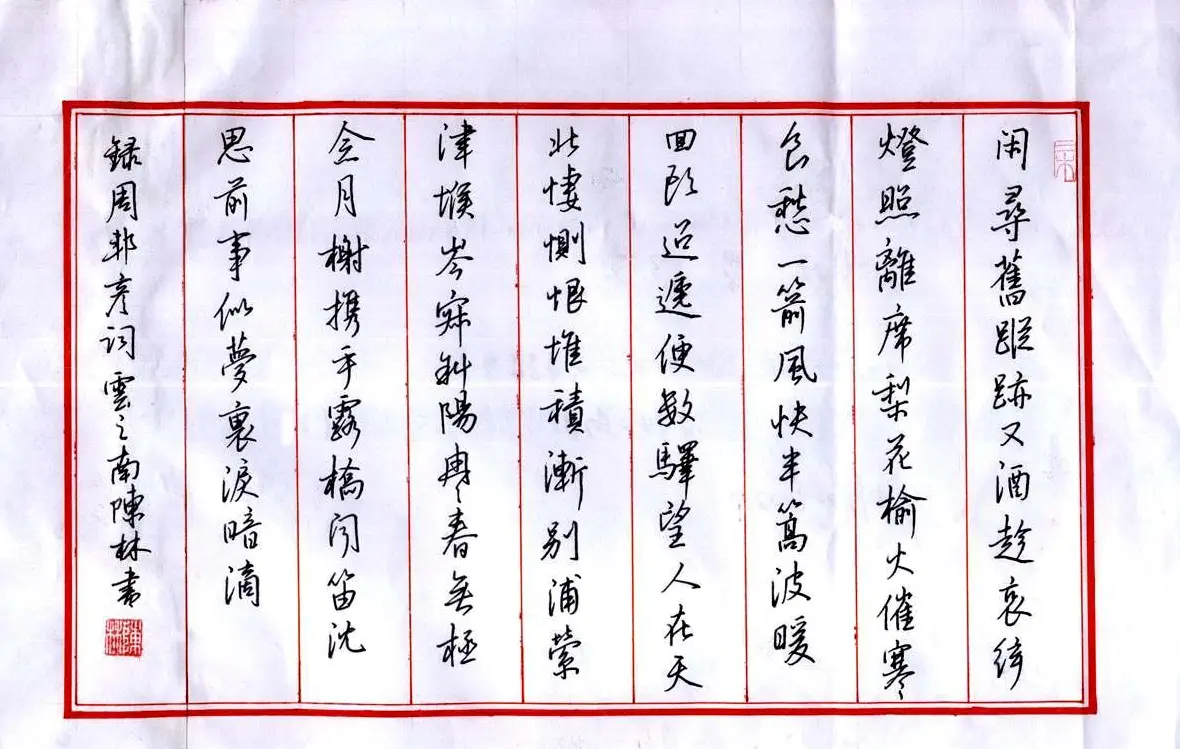 闲尋舊蹤跡又酒趁哀弦
燈照離席梨花榆火催寒
食愁一箭風快半篙波暖
回頭迢遞便數驛望人在天
北悽惻恨堆積漸别浦縈
津堠岑寂斜陽冉冉春無極
念月榭攜手露橋闻笛沈
思前事似夢裏淚暗滴
録周邦彦词雲之南陳林書
陳林